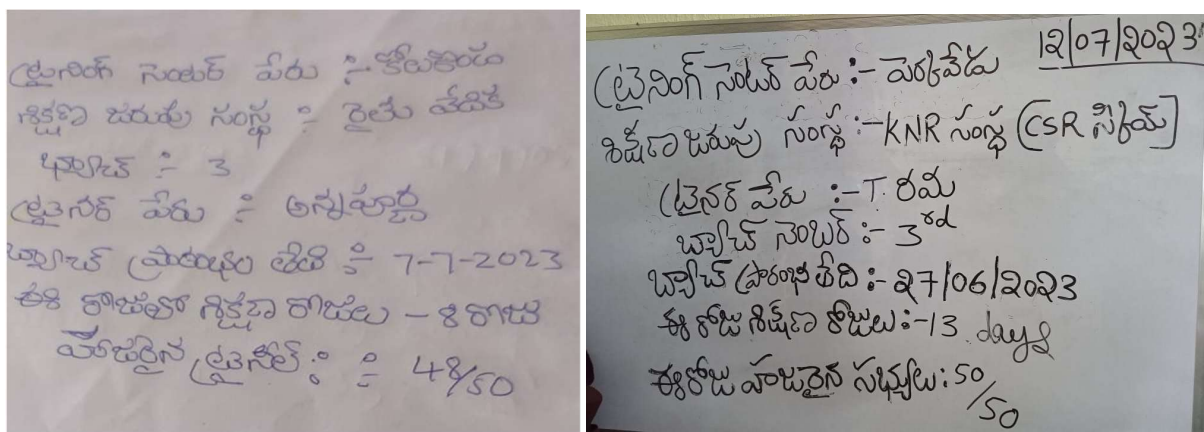 ట్రైనింగ్ సెంటర్ పేరు :- కోలకొండ
శిక్షణ జరుపు సంస్థ :- రైతు వేదిక
బ్యాచ్ :- 3
ట్రైనర్ పేరు :- అన్నపూర్ణ
బ్యాచ్ ప్రారంభం తేది :- 7-7-2023
ఈ రోజుతో శిక్షణా రోజులు - 8 రోజు
హాజరైన ట్రైనీల్ : :- 48/50
12/07/2023
ట్రైనింగ్ సెంటర్ పేరు :- పెర్కవేడు
శిక్షణా జరుపు సంస్థ :- KNR సంస్థ (CSR స్కీమ్)
ట్రైనర్ పేరు :- T. రమ
బ్యాచ్ నెంబర్ :- 3rd
బ్యాచ్ ప్రారంభ తేది :- 27/06/2023
ఈ రోజు శిక్షణా రోజులు :- 13 days
ఈరోజు హజరైన సభ్యులు : 50/50